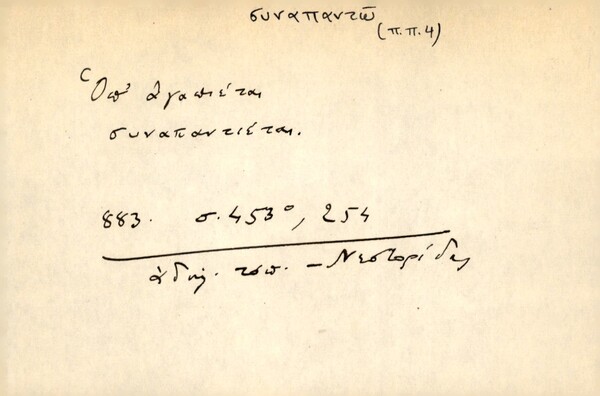 συναπαντῶ
(π.π.4)
Ὁπ' ἀγαπιέται
συναπαντιέται.
883. σ. 453°, 254
ἀδήλ. τοπ. – Νεστορίδης